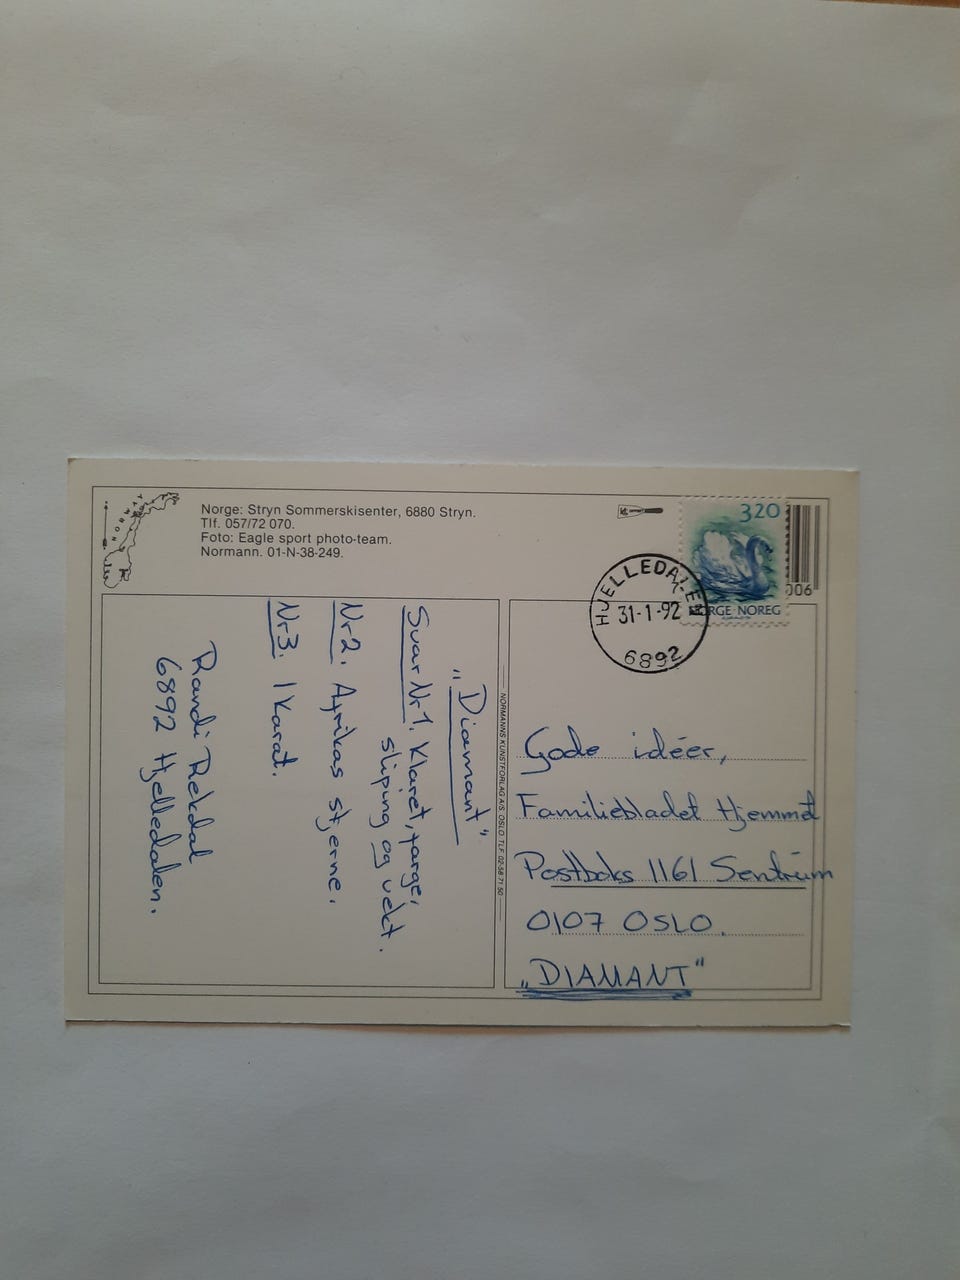 NORWAY
Norge: Stryn Sommerskisenter, 6880 Stryn.
Tlf. 057/72 070.
Foto: Eagle sport photo-team.
Normann. 01-N-38-249.
320
NORGE NOREG
006
HJELLEDALEN
31-1-92
6892
„Diamant”
Svar Nr 1. Klaret, farge,
sliping og vekt.
Nr 2. Afrikas stjerne.
Nr 3. 1 Karat.
Randi Rekdal
6892 Hjelledalen.
NORMANNS KUNSTFORLAG A/S. OSLO. TLF. 02-58 71 50
Gode idéer,
Familiebladet Hjemmet
Postboks 1161 Sentrum
0107 OSLO.
„DIAMANT”